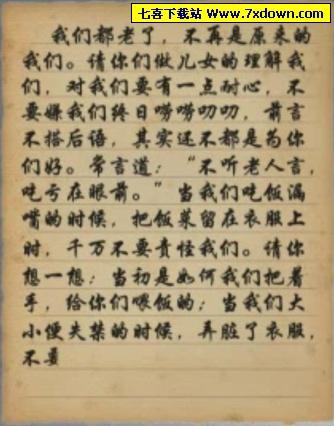 七喜下载站
www.7xdown.com
我们都老了，不再是原来的
我们。请你们做儿女的理解我
们，对我们要有一点耐心，不
要嫌我们终日唠唠叨叨，前言
不搭后语，其实还不都是为你
们好。常言道：“不听老人言，
吃亏在眼前。”当我们吃饭漏
嘴的时候，把饭菜留在衣服上
时，千万不要责怪我们。请你
想一想：当初是如何我们把着
手，给你们喂饭的；当我们大
小便失禁的时候，弄脏了衣服，
不要